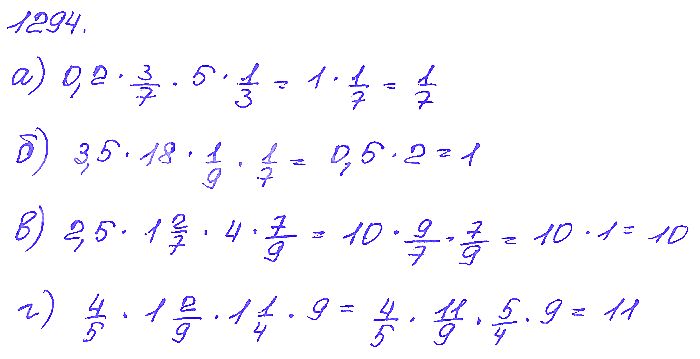 1294.
а) 0,2 · 3/7 · 5 · 1/3 = 1 · 1/7 = 1/7
б) 3,5 · 18 · 1/9 · 1/7 = 0,5 · 2 = 1
в) 2,5 · 1 2/7 · 4 · 7/9 = 10 · 9/7 · 7/9 = 10 · 1 = 10
г) 4/5 · 1 2/9 · 1 1/4 · 9 = 4/5 · 11/9 · 5/4 · 9 = 11